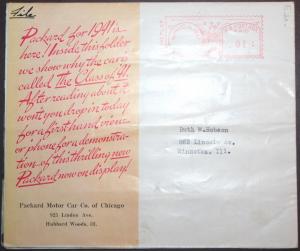 File
Packard for 1941 is
here! Inside this folder
we show why the car is
called The Class of '41.
After reading about it
won't you drop in today
for a first hand view-
or phone for a demonstra-
tion of this thrilling new
Packard now on display!
Packard Motor Car Co. of Chicago
925 Linden Ave.
Hubbard Woods, Ill.
Ruth W. Hobson
962 Lincoln Av.
Winnetka, Ill.